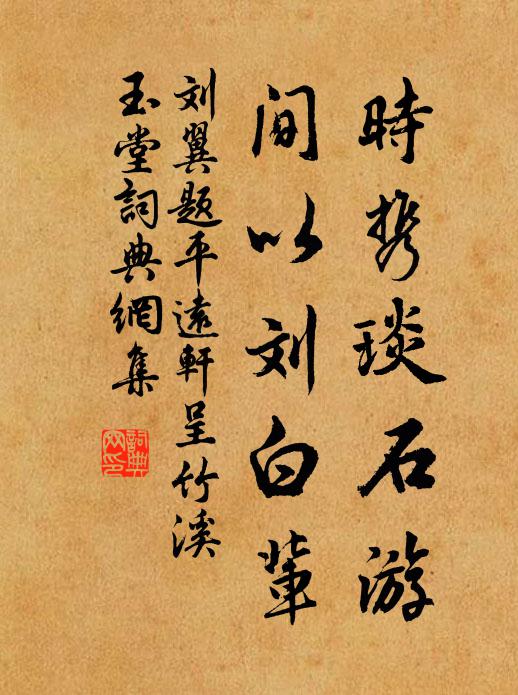 時携琰石游
間以刘白輩
刘翼题平遠軒呈竹溪
玉堂詞典網集
詞典网印